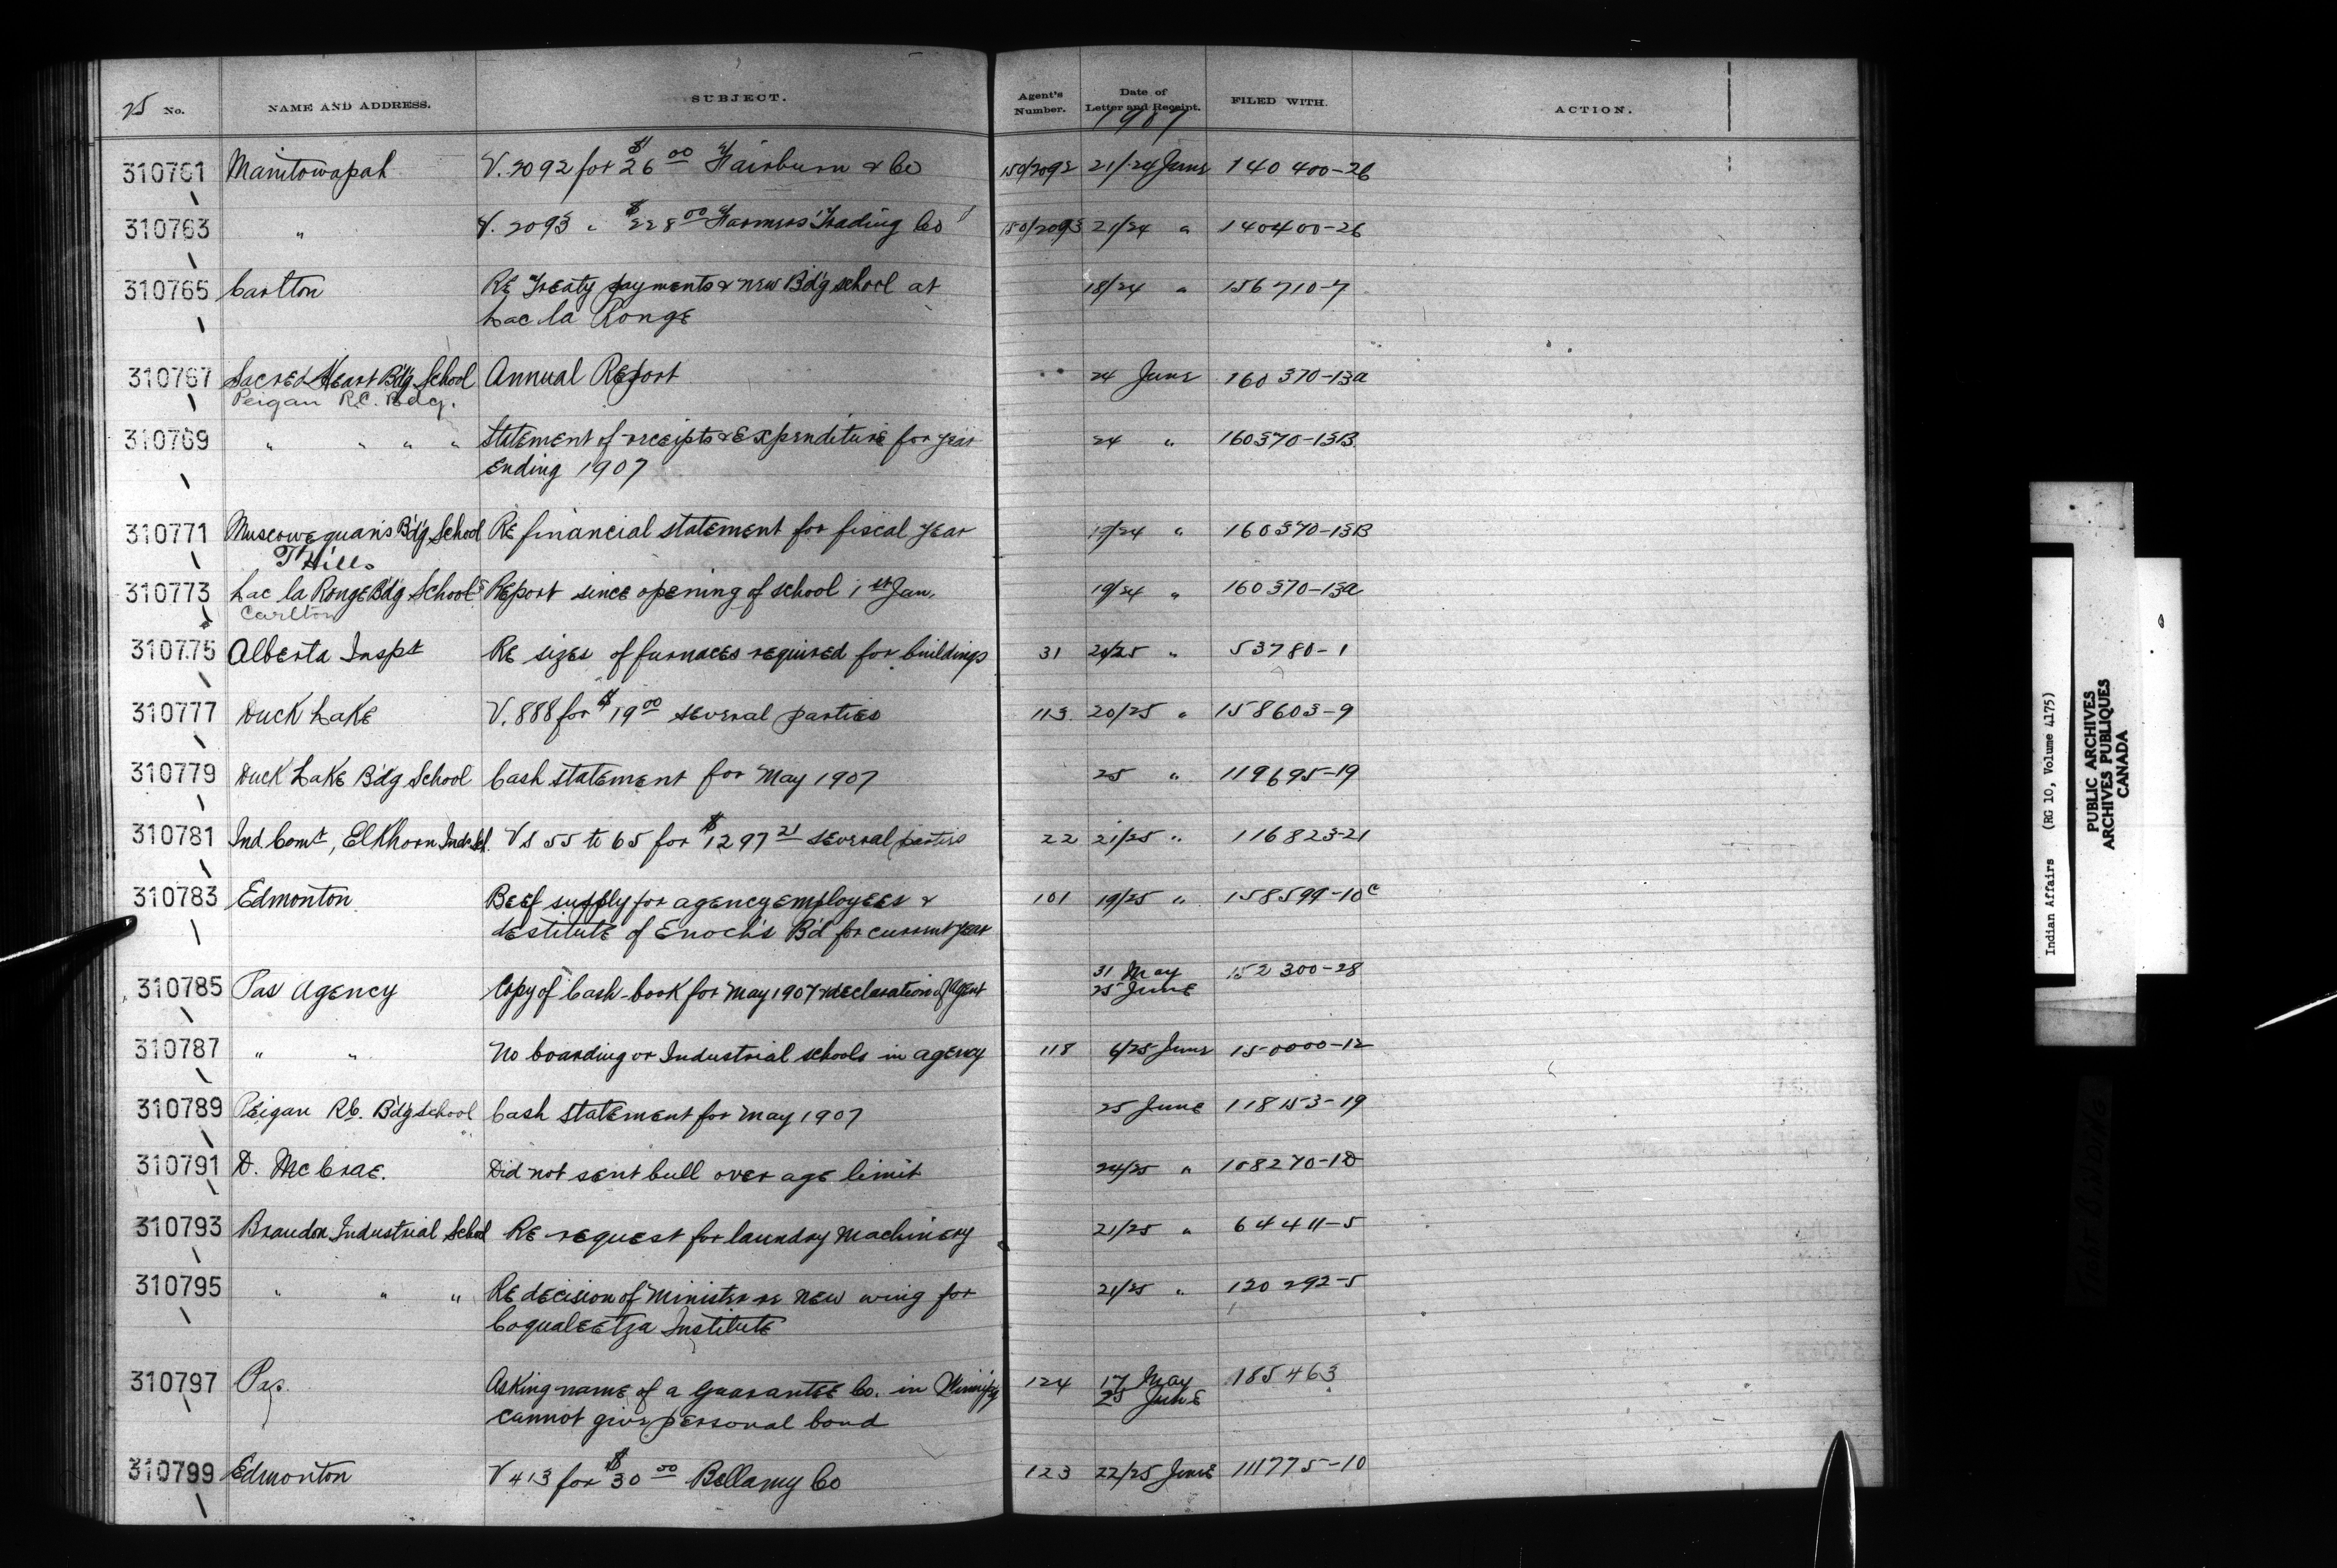 25 No. NAME AND ADDRESS. SUBJECT. Agent's Number. Date of Letter and Receipt. 1907 FILED WITH. ACTION.
310761 Manitowapah V. 2092 for $26 00 Fairburn & Co 150/2092 21/24 June 140400-26
310763 " V. 2093 " $228 00 Farmers' Trading Co 150/2093 21/24 " 140400-26
310765 Carlton Re Treaty payments & new Bd'g school at 18/24 " 156710-7
Lac la Ronge
310767 Sacred Heart Bd'g School Annual Report 24 June 160370-13a
Peigan R.C. Bdg.
310769 " " " " Statement of receipts & Expenditure for year 24 " 160370-13B
Ending 1907
310771 Muscowequan's Bd'g School Re financial statement for fiscal year 19/24 " 160370-13B
T Hills
310773 Lac la Ronge Bd'g School Report since opening of school 1st Jan. 19/24 " 160370-13a
Carlton
310775 Alberta Inspt Re sizes of furnaces required for buildings 31 20/25 " 53780-1
310777 Duck Lake V. 888 for $19 00 several parties 113 20/25 " 158603-9
310779 Duck Lake Bd'g School Cash statement for May 1907 25 " 119695-19
310781 Ind Comr, Elkhorn Inds Sch. Vs 55 to 65 for $1297 21 several parties 22 21/25 " 116823-21
310783 Edmonton Beef supply for agency employees & 101 19/25 " 158599-10c
destitute of Enoch's Bd for current year
310785 Pas Agency Copy of Cash-book for May 1907 & declaration of Agent 31 May 152300-28
25 June
310787 " " No boarding or Industrial schools in agency 118 6/25 June 150000-12
310789 Peigan R.C. Bd'g School Cash statement for May 1907 25 June 118153-19
310791 D. McCrae. Did not sent bull over age limit 24/25 " 108270-10
310793 Brandon Industrial School Re request for laundry machinery 21/25 " 64411-5
310795 " " " Re decision of Minister re new wing for 21/25 " 120292-5
Coqualeetza Institute
310797 Pas. Asking name of a Guarantee Co. in Winnipeg 124 17 May 185463
cannot give personal bond 25 June
310799 Edmonton V 413 for $30 00 Bellamy Co 123 22/25 June 111775-10
Indian Affairs (RG 10, Volume 4175)
PUBLIC ARCHIVES
ARCHIVES PUBLIQUES
CANADA